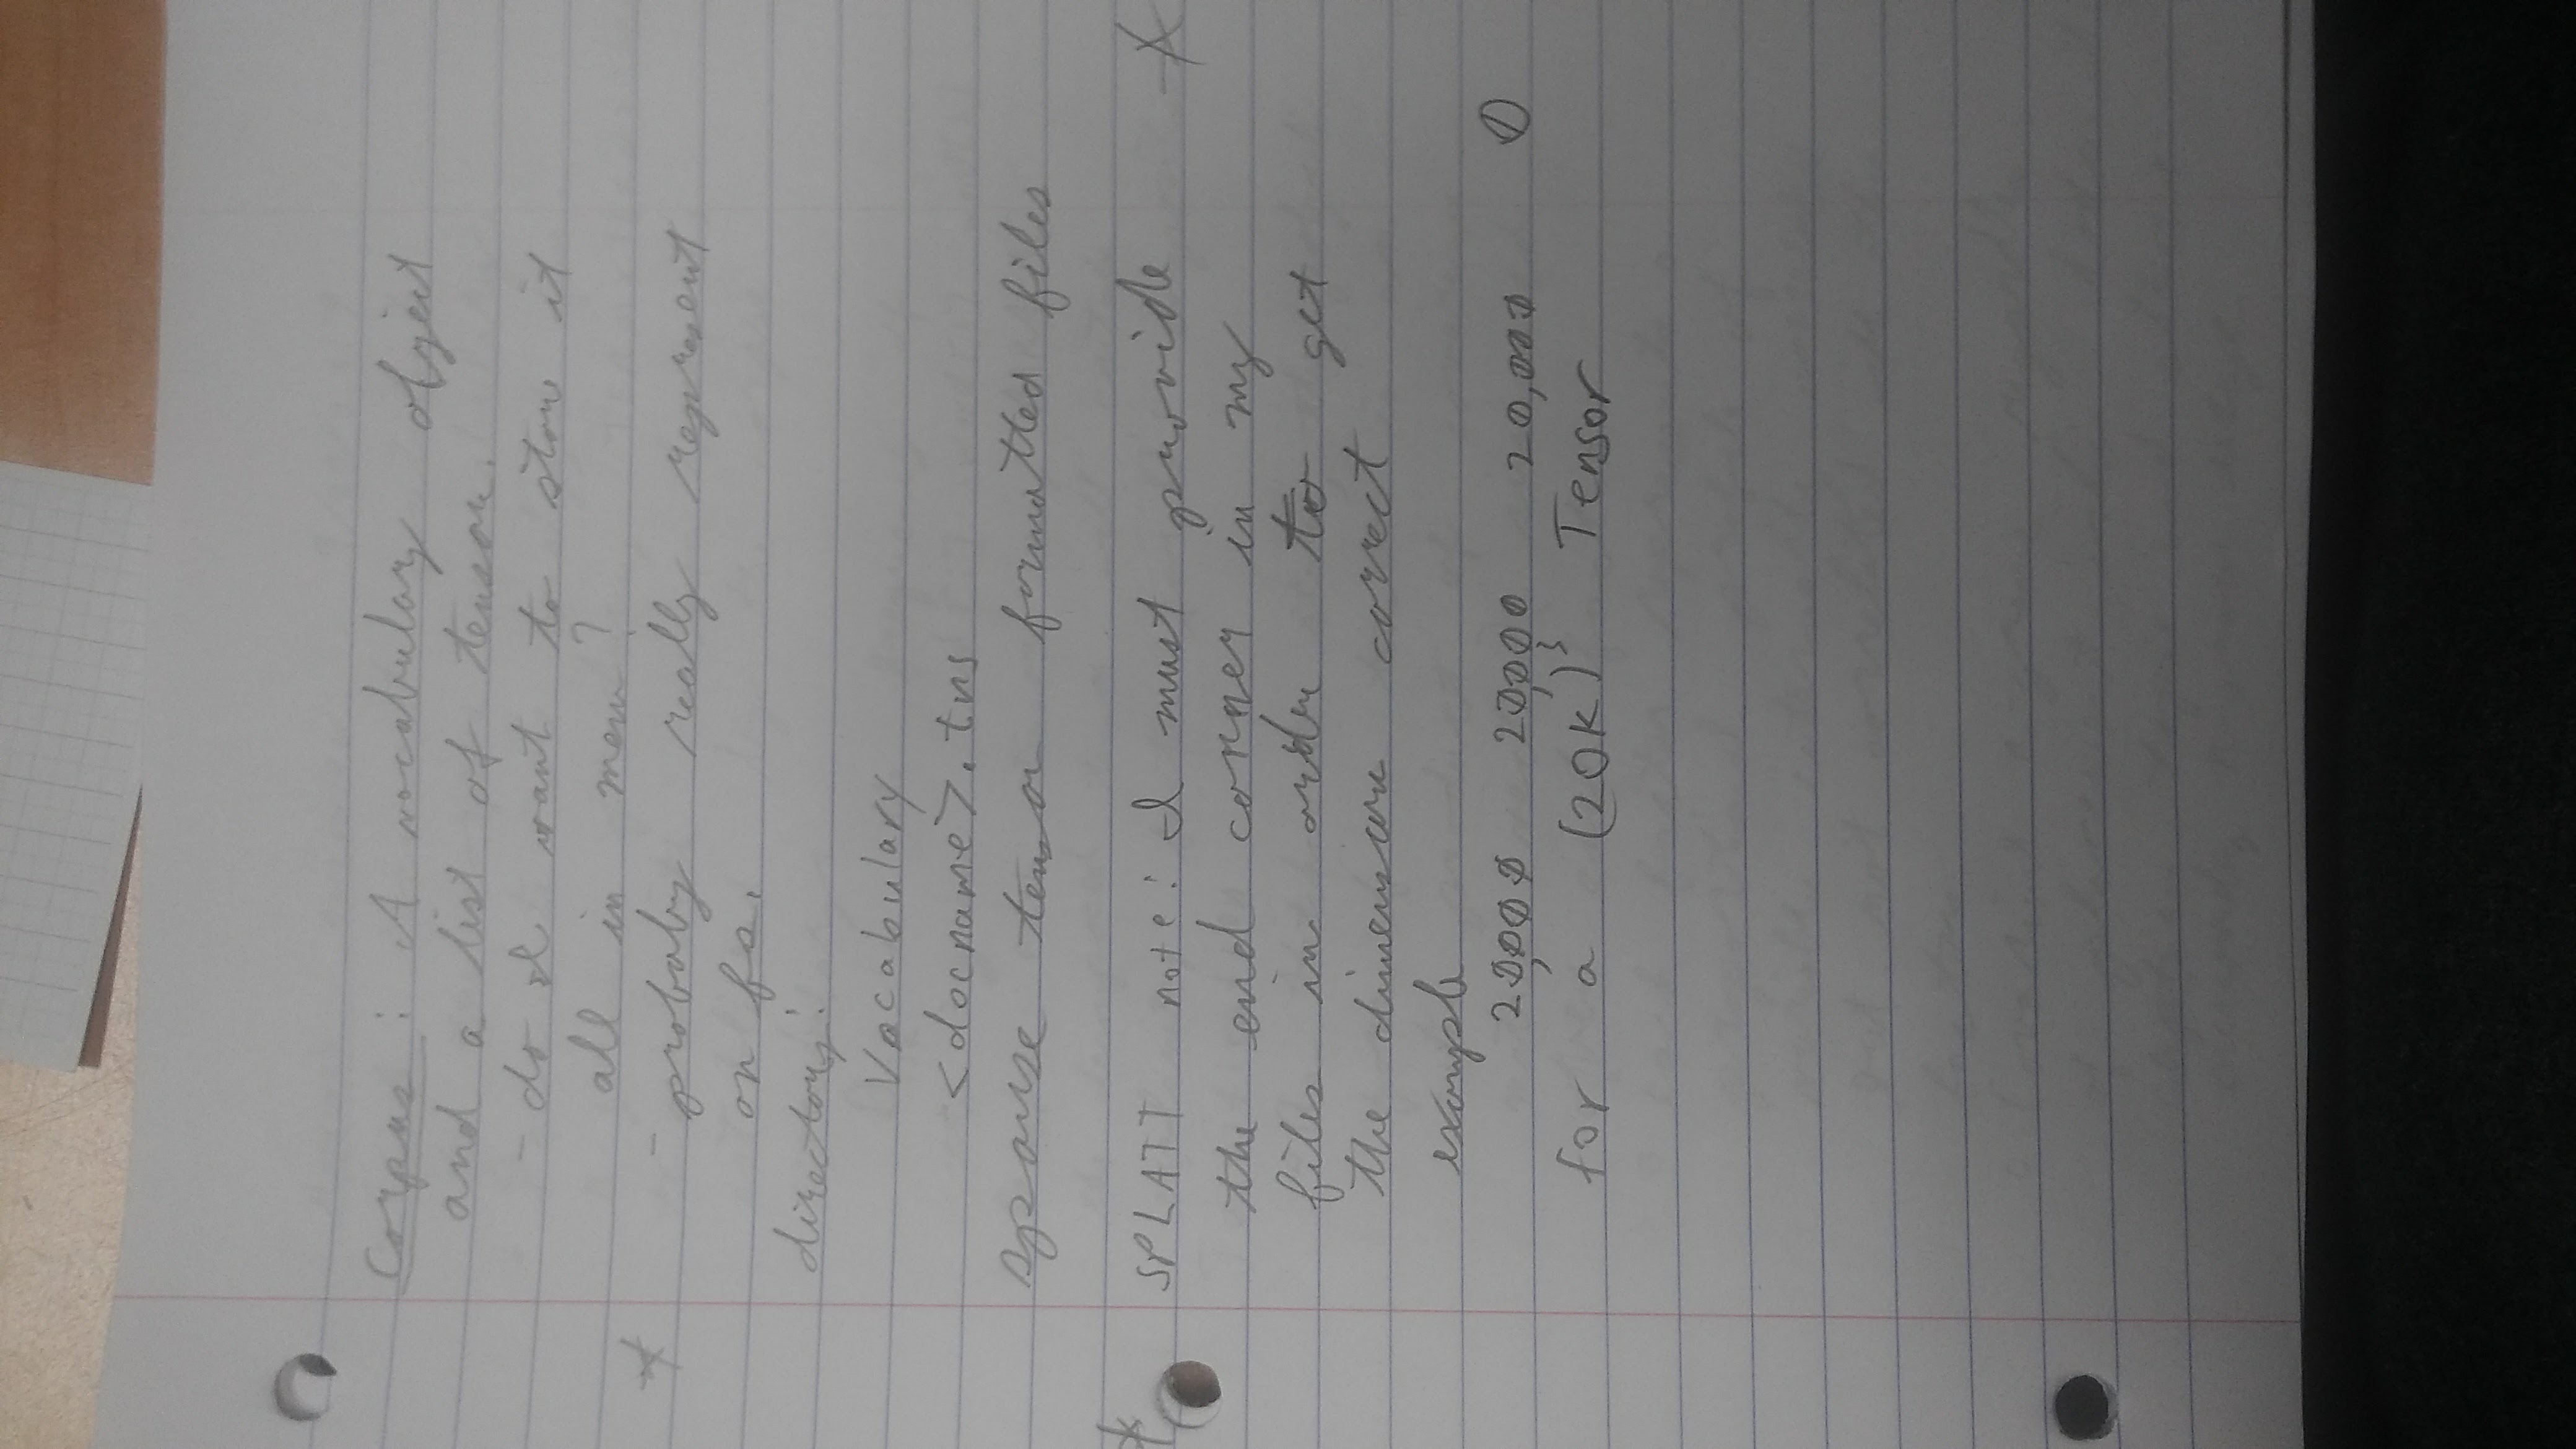 Corpus : A vocabulary object
and a list of tensor.
- do I want to store it
all in mem?
* - probaby really represent
on fs.
directory:
Vocabulary
<docname>.tns
sparse tensor formatted files
* SPLATT note: I must provide *
the end corner in my
files in order to get
the dimension correct
example
20,000 20,000 20,000 0
for a (20K)³ Tensor